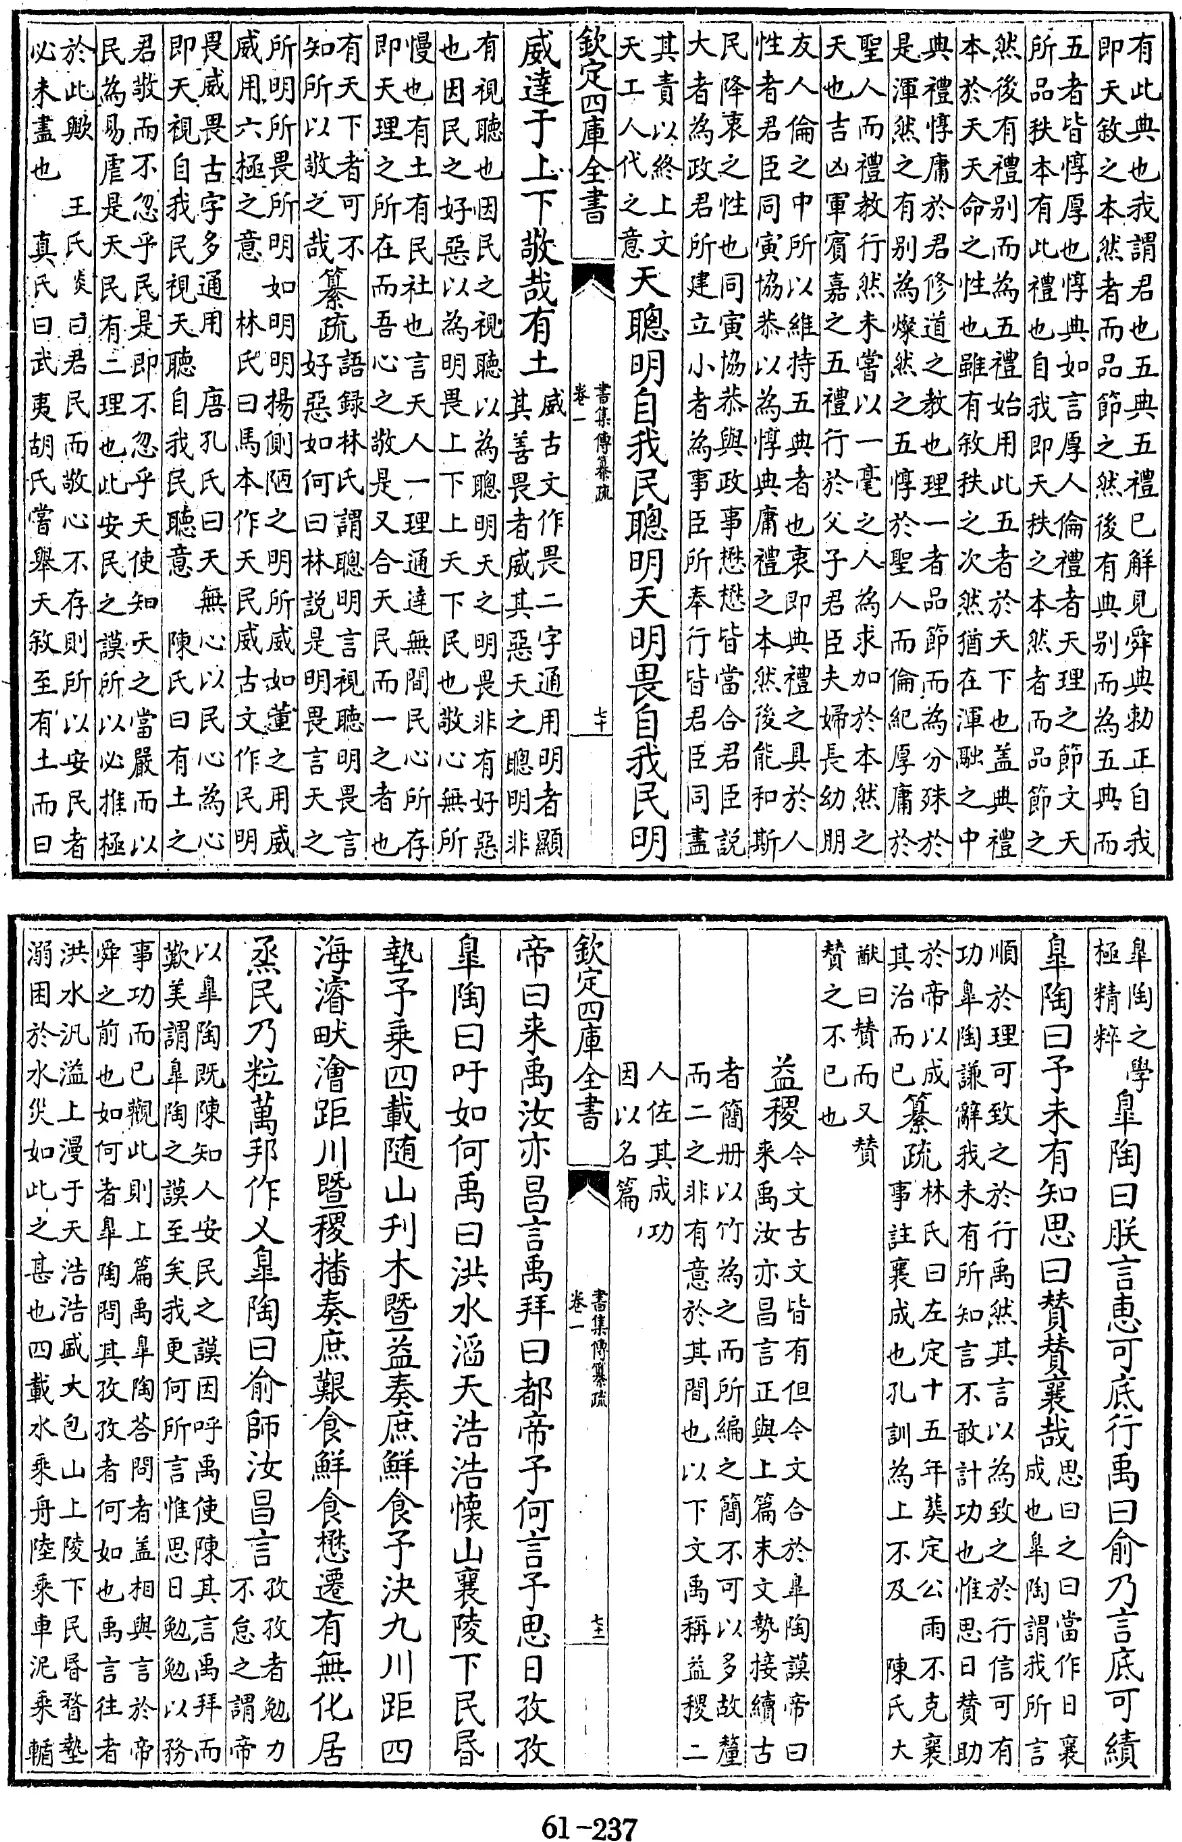 有此典也我謂君也五典五禮已解見舜典勅正自我
即天敘之本然者而品節之然後有典别而為五典而
五者皆惇厚也惇典如言厚人倫禮者天理之節文天
所品秩本有此禮也自我即天秩之本然者而品節之
然後有禮别而為五禮始用此五者於天下也盖典禮
本於天天命之性也雖有敘秩之次然猶在渾融之中
典禮惇庸於君修道之教也理一者品節而為分殊於
是渾然之有别為燦然之五惇於聖人而倫紀厚庸於
聖人而禮教行然未嘗以一毫之人為求加於本然之
天也吉凶軍賓嘉之五禮行於父子君臣夫婦長幼朋
友人倫之中所以維持五典者也衷即典禮之具於人
性者君臣同寅協恭以為惇典庸禮之本然後能和斯
民降衷之性也同寅協恭與政事懋懋皆當合君臣說
大者為政君所建立小者為事臣所奉行皆君臣同盡
其責以終上文
天工人代之意
天聰明自我民聰明天明畏自我民明
欽定四庫全書
書集傳纂疏
卷一
七十
威達于上下敬哉有土
威古文作畏二字通用明者顯
其善畏者威其惡天之聰明非
有視聽也因民之視聽以為聰明天之明畏非有好惡
也因民之好惡以為明畏上下上天下民也敬心無所
慢也有土有民社也言天人一理通達無間民心所存
即天理之所在而吾心之敬是又合天民而一之者也
有天下者可不
知所以敬之哉
纂疏
語録林氏謂聰明言視聽明畏言
好惡如何曰林説是明畏言天之
所明所畏所明如明明揚側陋之明所威如董之用威
威用六極之意 林氏曰馬本作天民威古文作民明
畏威畏古字多通用 唐孔氏曰天無心以民心為心
即天視自我民視天聽自我民聽意 陳氏曰有土之
君敬而不忽乎民是即不忽乎天使知天之當嚴而以
民為易虐是天民有二理也此安民之謨所以必推極
於此歟 王氏炎曰君民而敬心不存則所以安民者
必未盡也 真氏曰武夷胡氏嘗舉天敘至有土而曰
皐陶之學
極精粹
皐陶曰朕言惠可底行禹曰俞乃言底可績
皐陶曰予未有知思曰贊贊襄哉
思曰之曰當作日襄
成也皐陶謂我所言
順於理可致之於行禹然其言以為致之於行信可有
功皐陶謙辭我未有所知言不敢計功也惟思日贊助
於帝以成
其治而已
纂疏
林氏曰左定十五年葬定公雨不克襄
事註襄成也孔訓為上不及 陳氏大
猷曰贊而又贊
贊之不已也
益稷
今文古文皆有但今文合於皐陶謨帝曰
来禹汝亦昌言正與上篇末文勢接續古
者簡册以竹為之而所編之簡不可以多故釐
而二之非有意於其間也以下文禹稱益稷二
人佐其成功
因以名篇
欽定四庫全書
書集傳纂疏
卷一
七十一
帝曰来禹汝亦昌言禹拜曰都帝予何言予思日孜孜
皐陶曰吁如何禹曰洪水滔天浩浩懷山襄陵下民昬
墊予乗四載随山刋木暨益奏庶鮮食予決九川距四
海濬畎澮距川暨稷播奏庶艱食鮮食懋遷有無化居
烝民乃粒萬邦作乂皐陶曰俞師汝昌言
孜孜者勉力
不怠之謂帝
以皐陶既陳知人安民之謨因呼禹使陳其言禹拜而
歎美謂皐陶之謨至矣我更何所言惟思日勉勉以務
事功而已觀此則上篇禹皐陶荅問者盖相與言於帝
舜之前也如何者皐陶問其孜孜者何如也禹言往者
洪水汎溢上漫于天浩浩盛大包山上陵下民昬瞀墊
溺困於水災如此之甚也四載水乗舟陸乗車泥乗輴
61-237